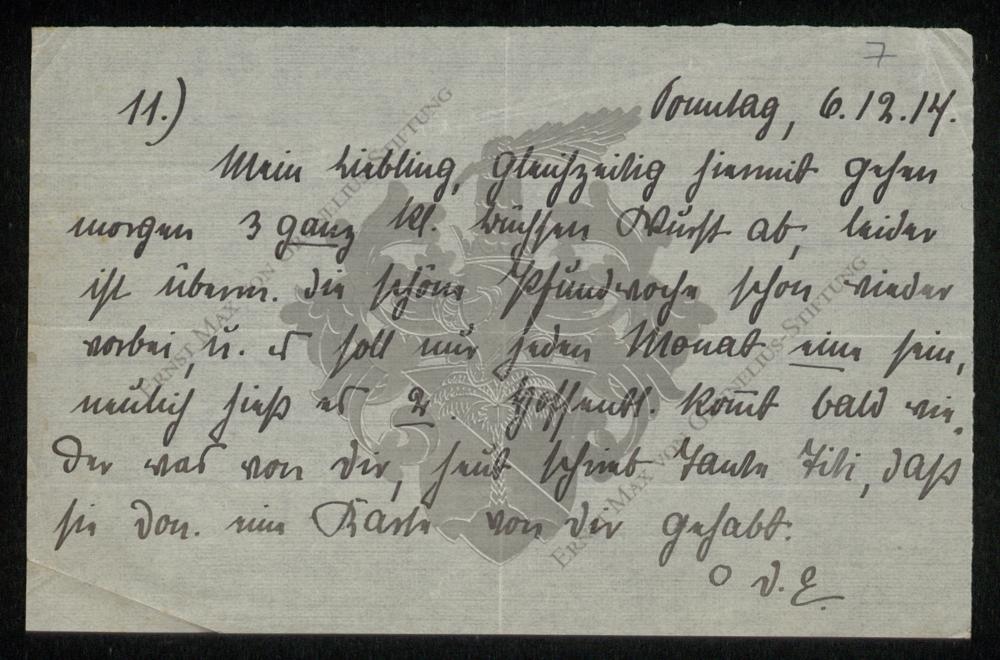 7
11.) Sonntag, 6.12.14.
Mein Liebling, gleichzeitig hiermit gehen
morgen 3 ganz kl. Büchsen Wurst ab, leider
ist überm. die schöne Pfundwoche schon wieder
vorbei, u. es soll nur jeden Monat eine sein,
neulich hieß es 2. Hoffentl. kom̅t bald wie-
der was von dir, heut schrieb Tante Titi, daß
sie Don. eine Karte von dir gehabt.
O d. E.
ERNST MAX VON GRNELIUS-STIFTUNG
ERNST MAX VON GRNELIUS-STIFTUNG